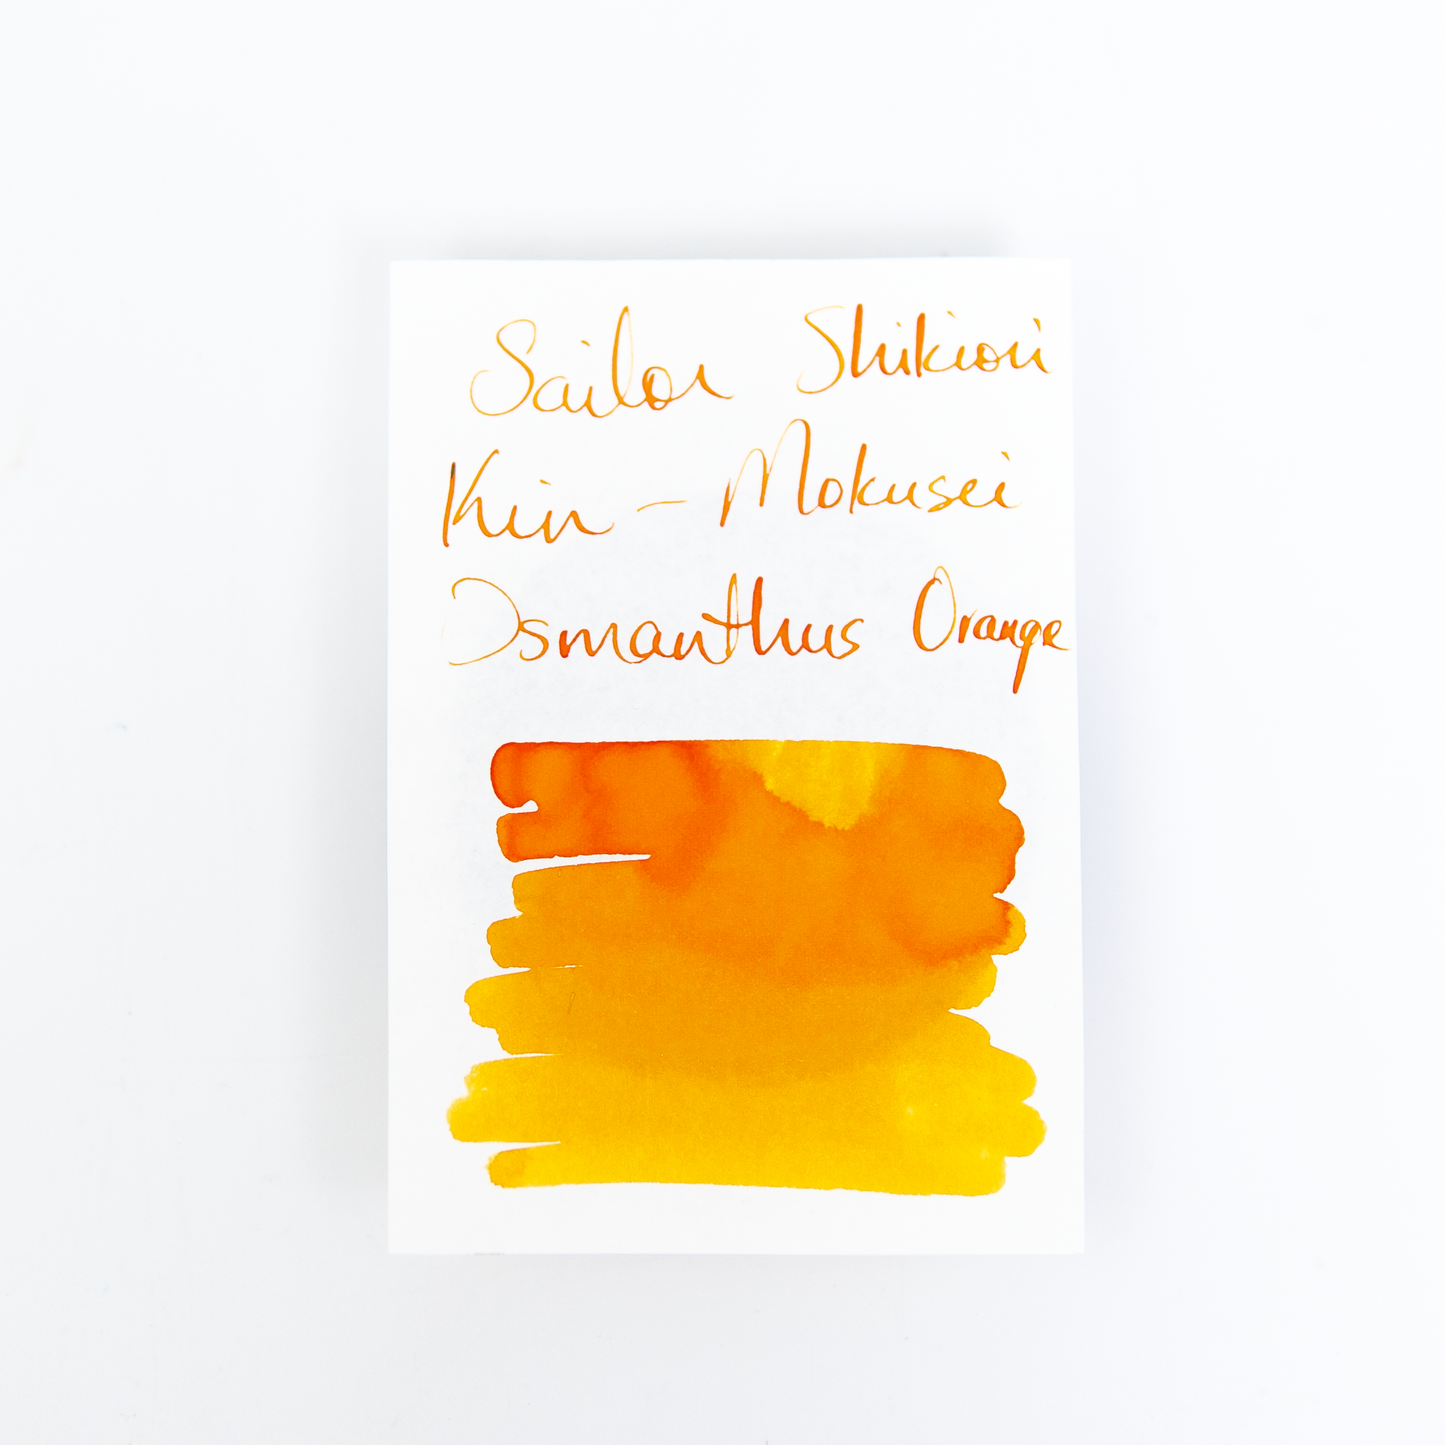 Sailor Shikiori
Kin-Mokusei
Osmanthus Orange